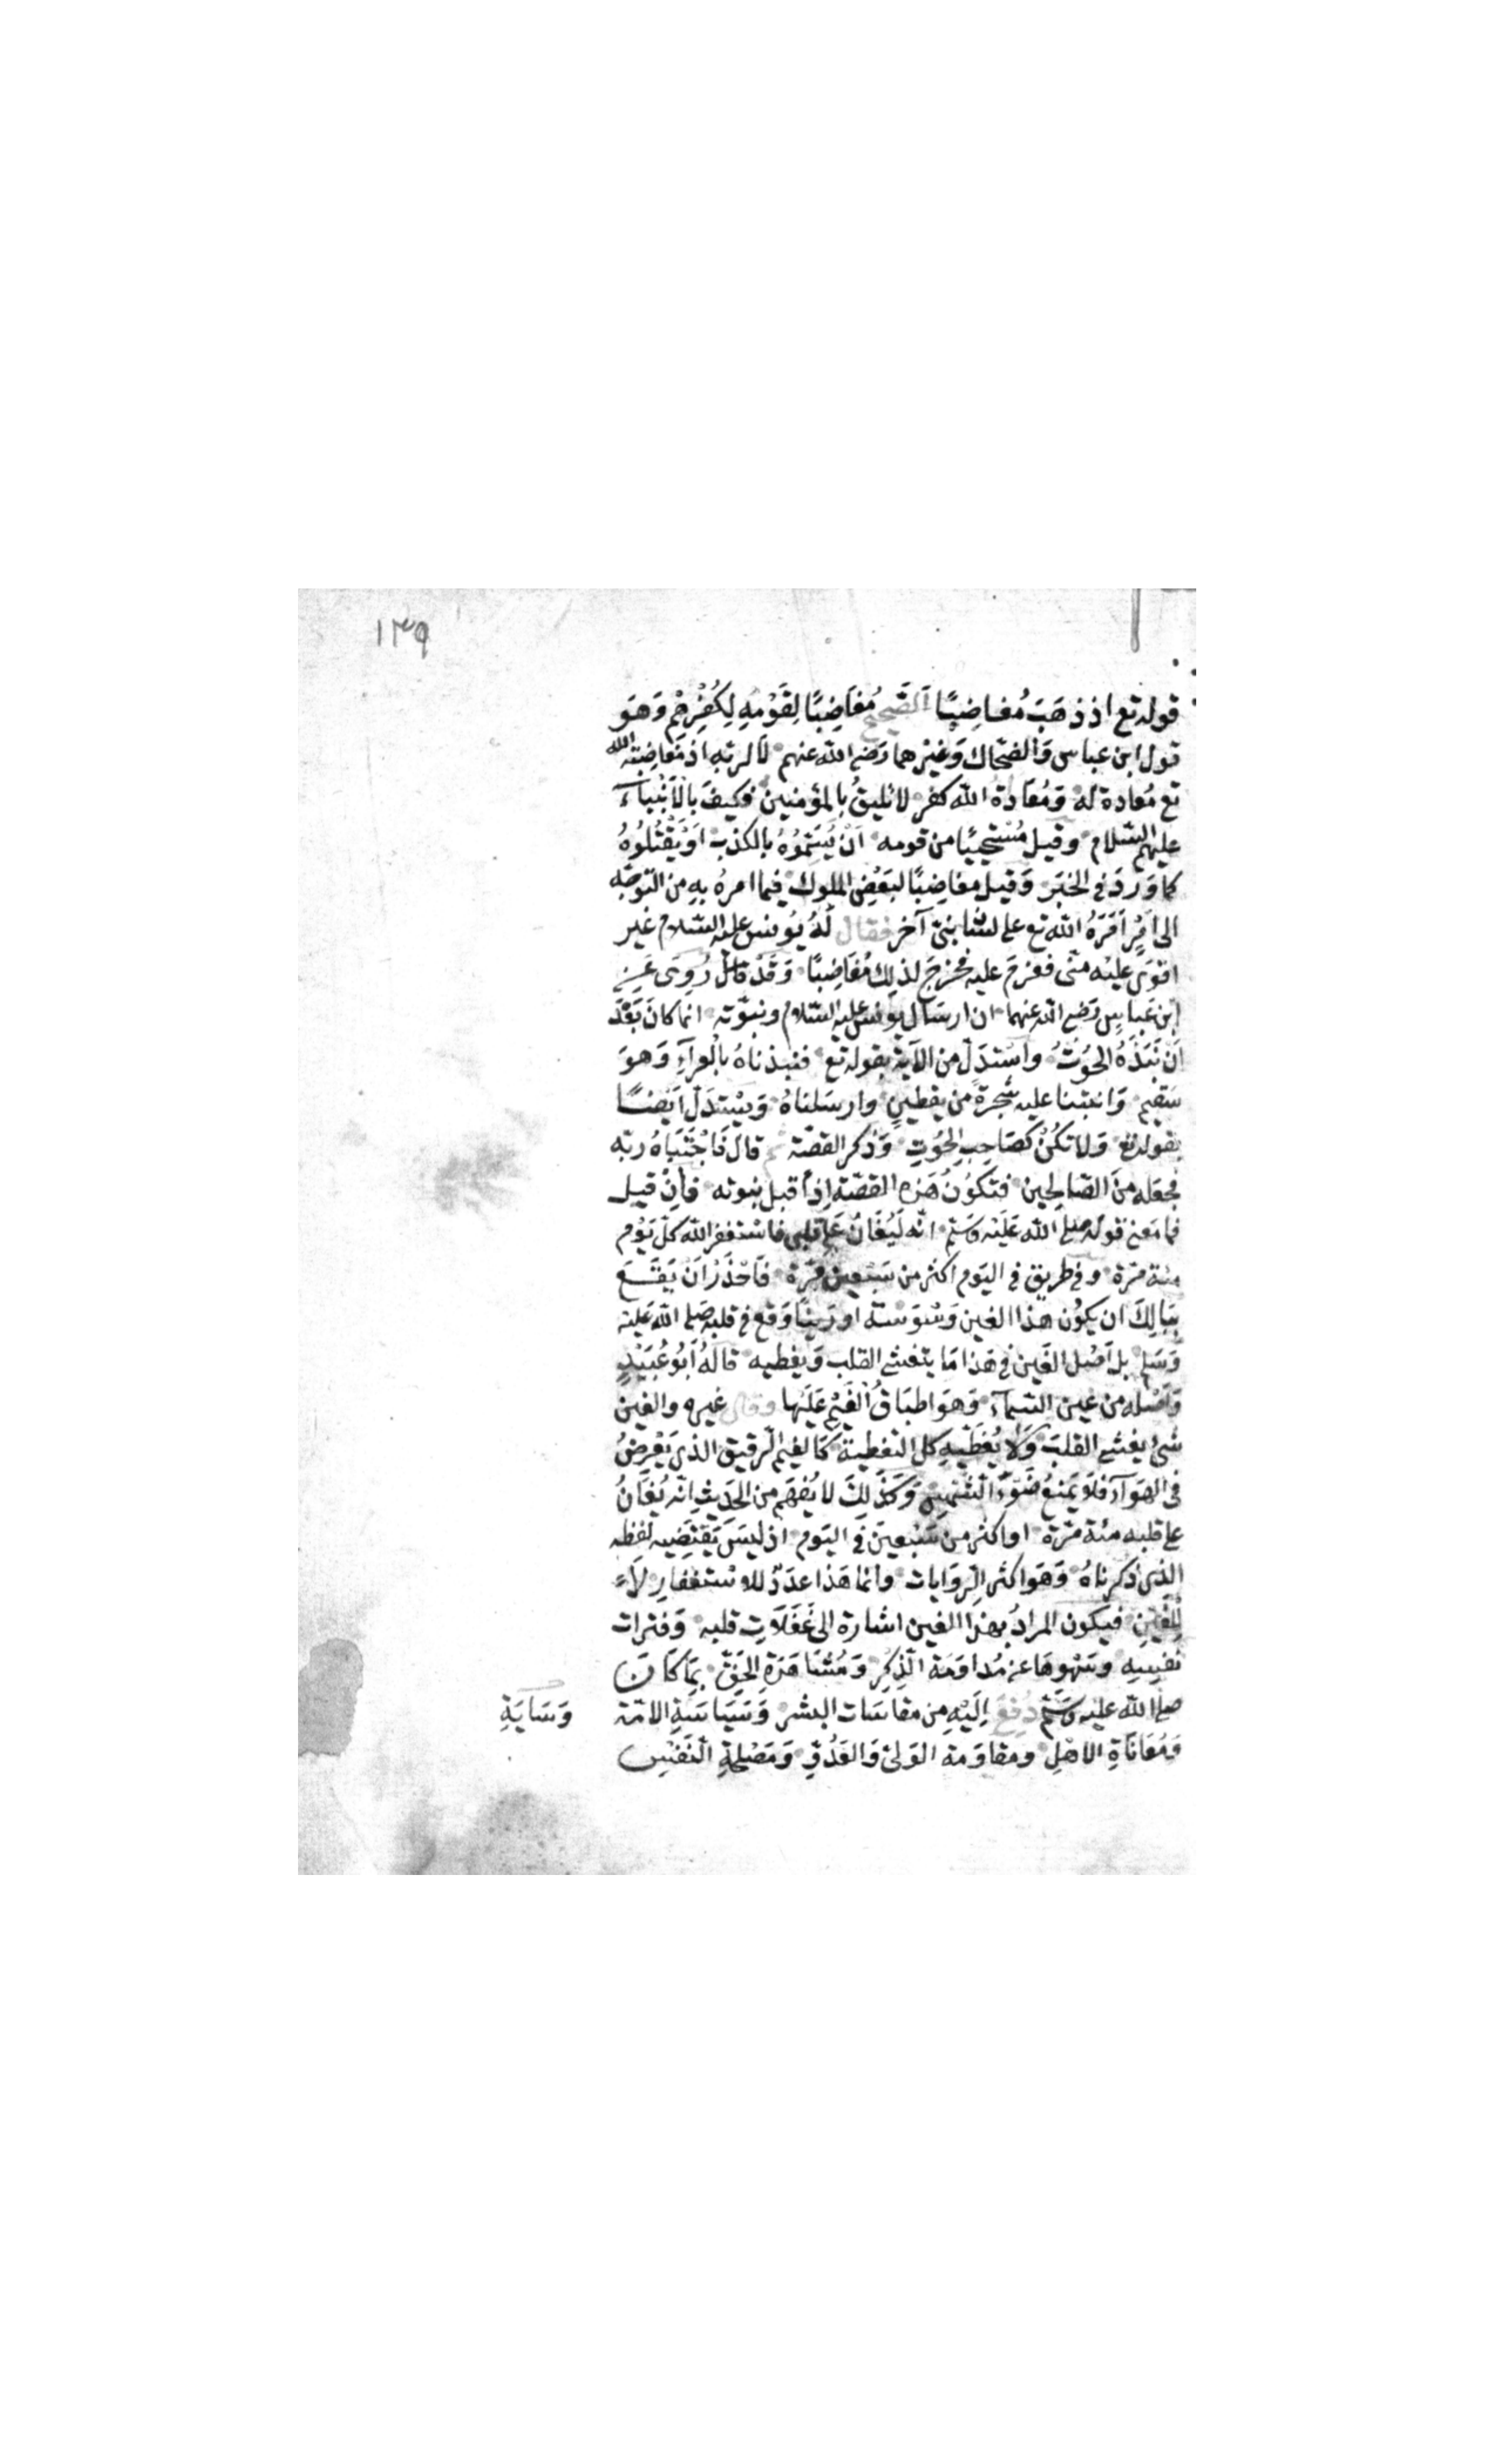 ١٣٩
قوله تع اذ ذهَبَ مُغاضِبًا اَلصَّحيح مُغَاضِبًا لِقَوْمِهِ لِكُفْرِهِمْ وَهوَ
قول ابن عباس وَالضحّاك وَغيْرهما رَضي الله عنهم لَا لربّه اذ مُغاضبَة الله
تع مُعادة له وَمُعَادةُ الله كفر لا تليقُ بالمؤمنين فكيفَ بالْاَنْبيآء
عليهم السّلام وقيل مُسْتحيِيًا من قومه اَنْ يَسِمُوهُ بالكذب اَوْ يَقْتُلُوهُ
كما وَرَدَ في الخبَر وَقيل مغاضِبًا لبَعْضِ الملوك فيما امرهُ بِهِ من التّوجّه
الى اَمْرٍ اَمَرَهُ الله تع على لسَان نبيّ آخر فقال لَهُ يُونس عليه السّلام غير
اقوَى عليْه منّى فعَزمَ عليه فخرَجَ لذلِكَ مُغَاضِبًا وَقَدْ رُوِىَ عَنِ
ابْن عَبّاسٍ رَضي الله عنهما ان ارسَال يونس عليه السّلام ونبوّته انما كانَ بَعْدَ
اَنْ نَبَذَهُ الحُوتُ واسْتدَلّ من الآية بقوله تع فنبذناهُ بالْعرآءِ وَهوَ
سَقيم وَانبتنا عليه شجرةً من يقطينٍ وارسَلناهُ وَيسْتدَلّ ايْضًا
بقوله تع وَلا تكُنْ كصَاحِبِ الحُوتِ وَذكر القصّة ثم قالَ فَاجْتَبَاهُ ربّه
فجعَله منَ الصّالِحين فتكونُ هَذه القصّة اِذًا قبل نبوته فاِنْ قيل
فما مَعنى قوله صلى الله عَليْه وسَلّم انّه لَيُغَانُ عَلى قلبى فاسْتغفر الله كلّ يَوْم
مئة مَرّة وفى طريق فى اليَوم اكثر من سَبْعين مَرّة فَاحْذَرْ اَنْ يَقَعَ
بِبَالِكَ ان يكُون هذا الغين وَسْوَسَة او رَيْنًا وَقع فى قلبه صَلى الله عَليْه
وَسَلم بل اَصْل الغَين فى هَذا مَا يتغشى القلب وَيغطيه قالَهُ اَبُو عُبَيْدٍ
وَاَصْله من غين السّمآء وَهوَ اطبَاقُ الْغَيْمِ عَلَيْها وقال غيره والغين
شىء يغشى القلبَ وَلَا يُغَطّيهِ كل التغطية كَالغيْم الرّقيق الذى يَعْرِضُ
فى الهوَآء فلَا يَمْنعُ ضَوْءَ الشّمْس وَكَذَلِكَ لا يُفهَم من الحَديثِ انّه يُغَانُ
على قلبه مئة مَرّة او اكثر من سَبْعينَ فى اليَوم اذ ليسَ يَقتضِيه لفظه
الذى ذكرناهُ وَهوَ اكثر الرّوَايات وانما هَذا عدَدٌ للاسْتغفارِ لَا
لِلْغَيْنِ فيكون المرادُ بهذا الغين اشارة الى غَفَلَاتِ قلبه وَفترات
نفسِهِ وسَهْوهَا عن مُداوَمَة الذّكِرِ وَمُشَاهَدَةِ الحَقّ بِمَا كَانَ
صلى الله عليه وسَلّم دُفعَ اِلَيْهِ من مقاسَات البشر وَسَيَاسَةِ الامّة
وَسَايَةِ
وَمُعَانَاةِ الاهْلِ ومقاوَمَة الوَلىّ وَالعَدُوّ وَمَصْلحَةِ النّفْسِ